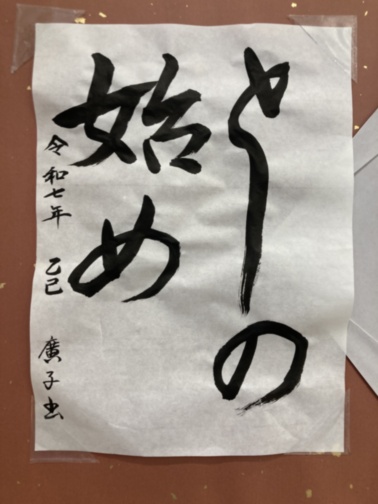 としの
始め
令和七年 乙巳 廣子書